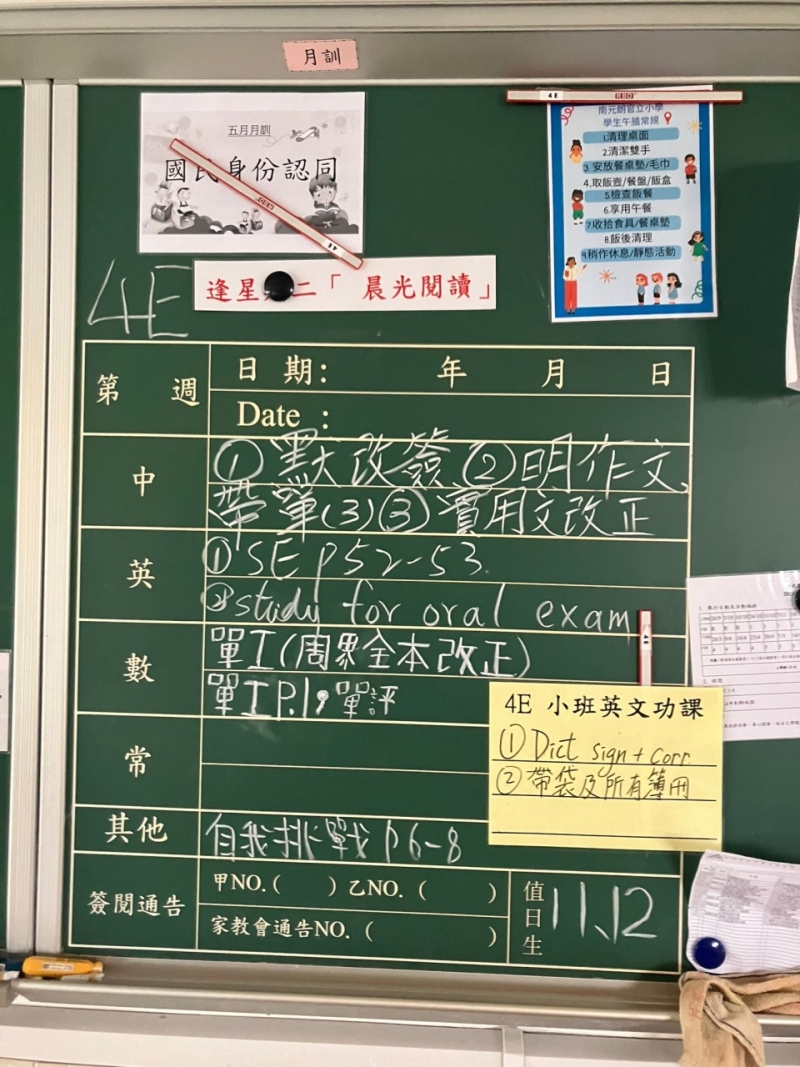 月訓
五月月訓
國民身份認同
4E
南元朗官立小學
學生午膳常規
1.清理桌面
2.清潔雙手
3.安放餐桌墊/毛巾
4.取飯壺/餐盤/飯盒
5.檢查飯餐
6.享用午餐
7.收拾食具/餐桌墊
8.飯後清理
9.稍作休息/靜態活動
逢星 二「晨光閱讀」
4E
第 週
日期: 年 月 日
Date :
中
①默改簽、②明作文、
帶單(3)③實用文改正
英
①SE P52-53.
②study for oral exam
數
單工(周界全本改正)
單工P.1,單評
常
4E 小班英文功課
① Dict sign + corr.
② 帶袋及所有簿冊
其他
自我挑戰 P6-8
簽閱通告
甲NO.( ) 乙NO.( )
家教會通告NO.( )
值日生
11、12